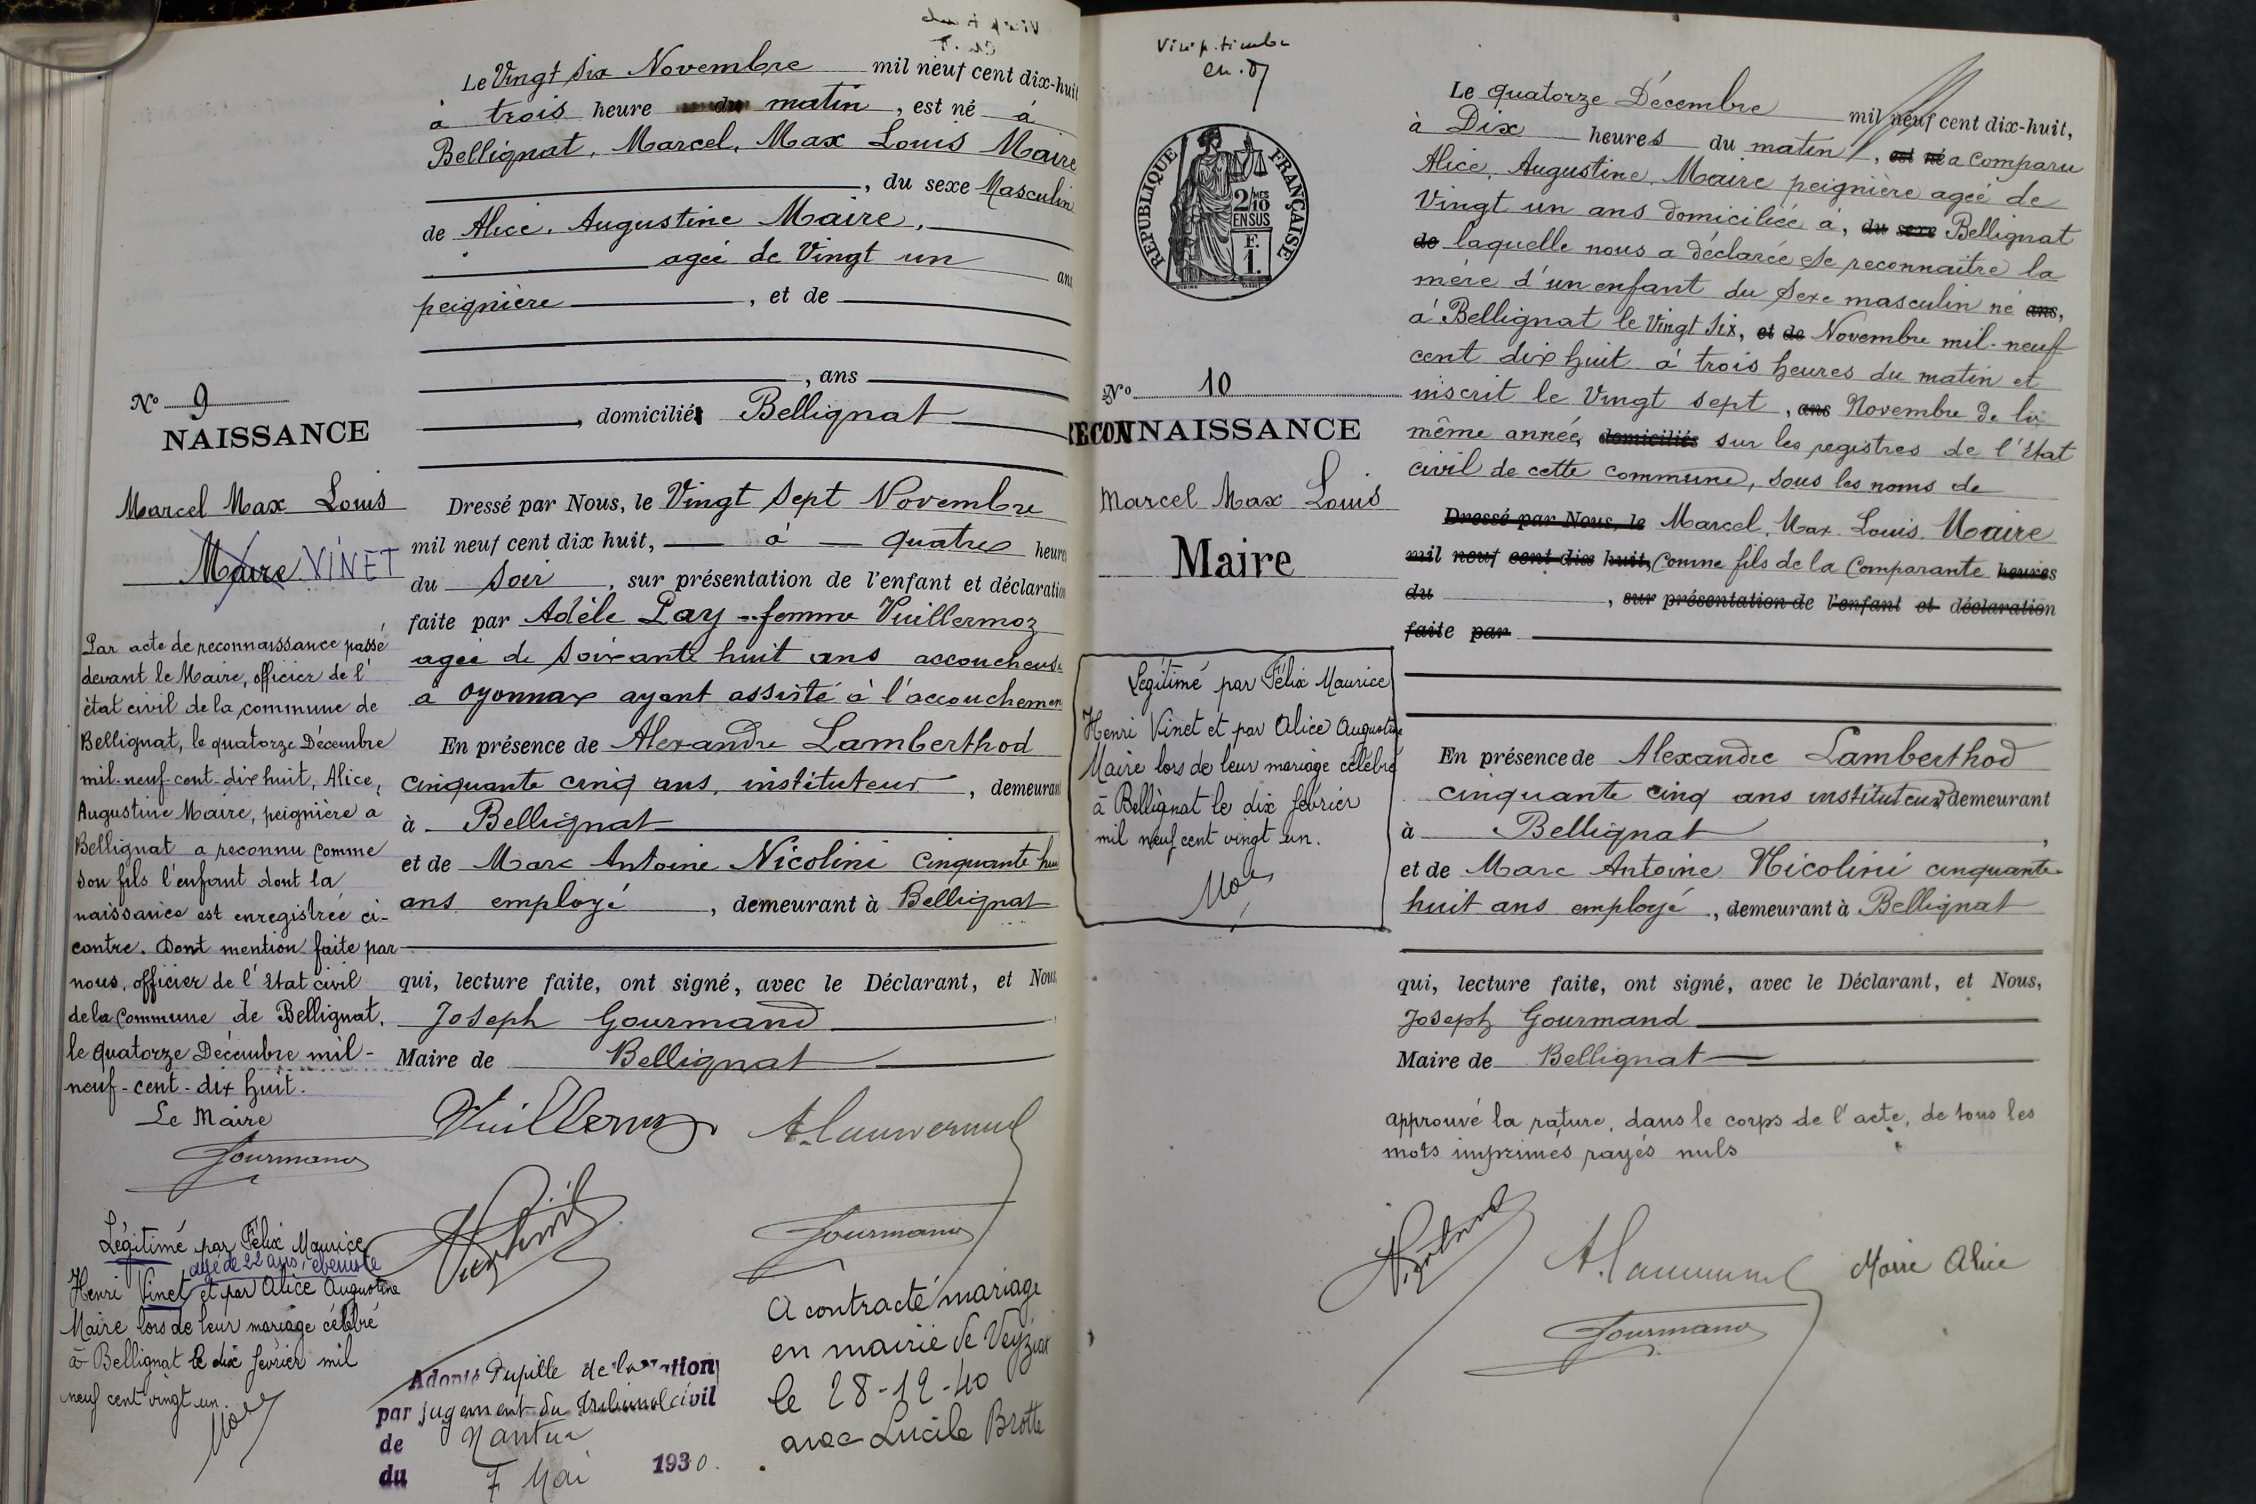 Le Vingt Six Novembre mil neuf cent dix-huit
à trois heure du matin, est né à
Bellignat, Marcel, Max Louis Maire
, du sexe Masculin
de Alice, Augustine Maire,
ageé de Vingt un ans
peignière, et de
, ans
, domicilié Bellignat
Nº 9
NAISSANCE
Marcel Max Louis
Maire VINET
Dressé par Nous, le Vingt Sept Novembre
mil neuf cent dix huit, à quatre heures
du Soir, sur présentation de l'enfant et déclaration
faite par Adèle Pay femme Vuillermoz
ageé de soixante huit ans accoucheuse
à Oyonnax ayant assisté à l'accouchement
En présence de Alexandre Lamberthod
cinquante cinq ans, instituteur, demeurant
à Bellignat
et de Marc Antoine Nicolini cinquante huit
ans employé, demeurant à Bellignat
qui, lecture faite, ont signé, avec le Déclarant, et Nous,
Joseph Gourmand
Maire de Bellignat
Par acte de reconnaissance passé
devant le Maire, officier de l'
état civil de la commune de
Bellignat, le quatorze Décembre
mil-neuf-cent-dix huit, Alice,
Augustine Maire, peignière a
Bellignat a reconnu comme
son fils l'enfant dont la
naissance est enregistrée ci-
contre. Dont mention faite par
nous, officier de l'état civil
de la Commune de Bellignat,
le quatorze Décembre mil-
neuf-cent-dix huit.
Le Maire
Gourmand
Légitimé par Félix Maurice
agé de 22 ans, ébéniste
Henri Vinet et par Alice Augustine
Maire lors de leur mariage célébré
à Bellignat le dix février mil
neuf cent vingt un.
Vuillermoz
Gourmand
Adopté Pupille de la Nation
par jugement du Tribunal civil
de Nantua
du 7 Mai 1930.
A contracté mariage
en mairie de Veyziat
le 28-12-40
avec Lucile Brotte
Visé p. timbre
RÉPUBLIQUE FRANÇAISE
2/10 MES
EN SUS
F.
1.
Nº 10
RECONNAISSANCE
Marcel Max Louis
Maire
Légitimé par Félix Maurice
Henri Vinet et par Alice Augustine
Maire lors de leur mariage célébré
à Bellignat le dix février
mil neuf cent vingt un.
Le quatorze Décembre mil neuf cent dix-huit,
à Dix heures du matin, est né a comparu
Alice, Augustine, Maire peignière ageé de
Vingt un ans domiciliée à, du sexe Bellignat
de laquelle nous a déclarée se reconnaitre la
mère d'un enfant du sexe masculin né ans,
à Bellignat le Vingt Six, et de Novembre mil-neuf
cent dix huit à trois heures du matin et
inscrit le Vingt sept, ans Novembre de la
même année, domiciliés sur les registres de l'état
civil de cette commune, sous les noms de
Dressé par Nous, le Marcel, Max Louis Maire
mil neuf cent dix huit, Comme fils de la Comparante heures
du, sur présentation de l'enfant et déclaration
faite par
En présence de Alexandre Lamberthod
cinquante cinq ans instituteur demeurant
à Bellignat,
et de Marc Antoine Nicolini cinquante
huit ans employé, demeurant à Bellignat
qui, lecture faite, ont signé, avec le Déclarant, et Nous,
Joseph Gourmand
Maire de Bellignat
approuvé la rature, dans le corps de l'acte, de tous les
mots imprimés rayés nuls
Maire Alice
Gourmand